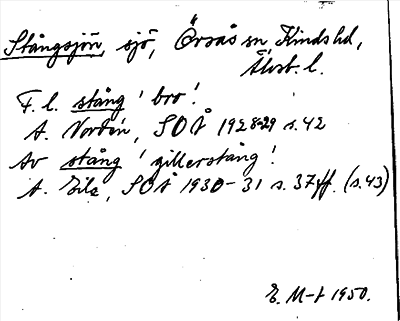 Stångsjön, sjö, Örsås sn, Kinds hd,
Älvsb. l.
F. l. stång 'bro'.
A. Nordén, SOÅ 1928-29 s. 42
Av stång 'gillerstång'.
A. Eils, SOÅ 1930-31 s. 37 ff. (s. 43)
E. M-t 1950.